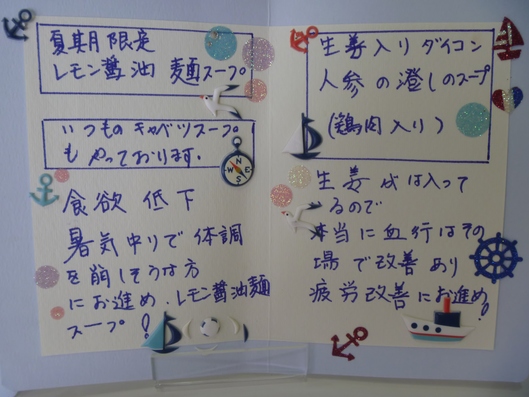 夏期限定
レモン醤油 麺スープ
いつものキャベツスープ
もやっております.
食欲低下
暑気中りで体調
を崩しそうな方
にお進め.レモン醤油麺
スープ!
N
W E
S
生姜入りダイコン
人参の澄しのスープ
(鶏肉入り)
生姜は入って
るので
本当に血行はその
場で改善あり
疲労改善にお進め!